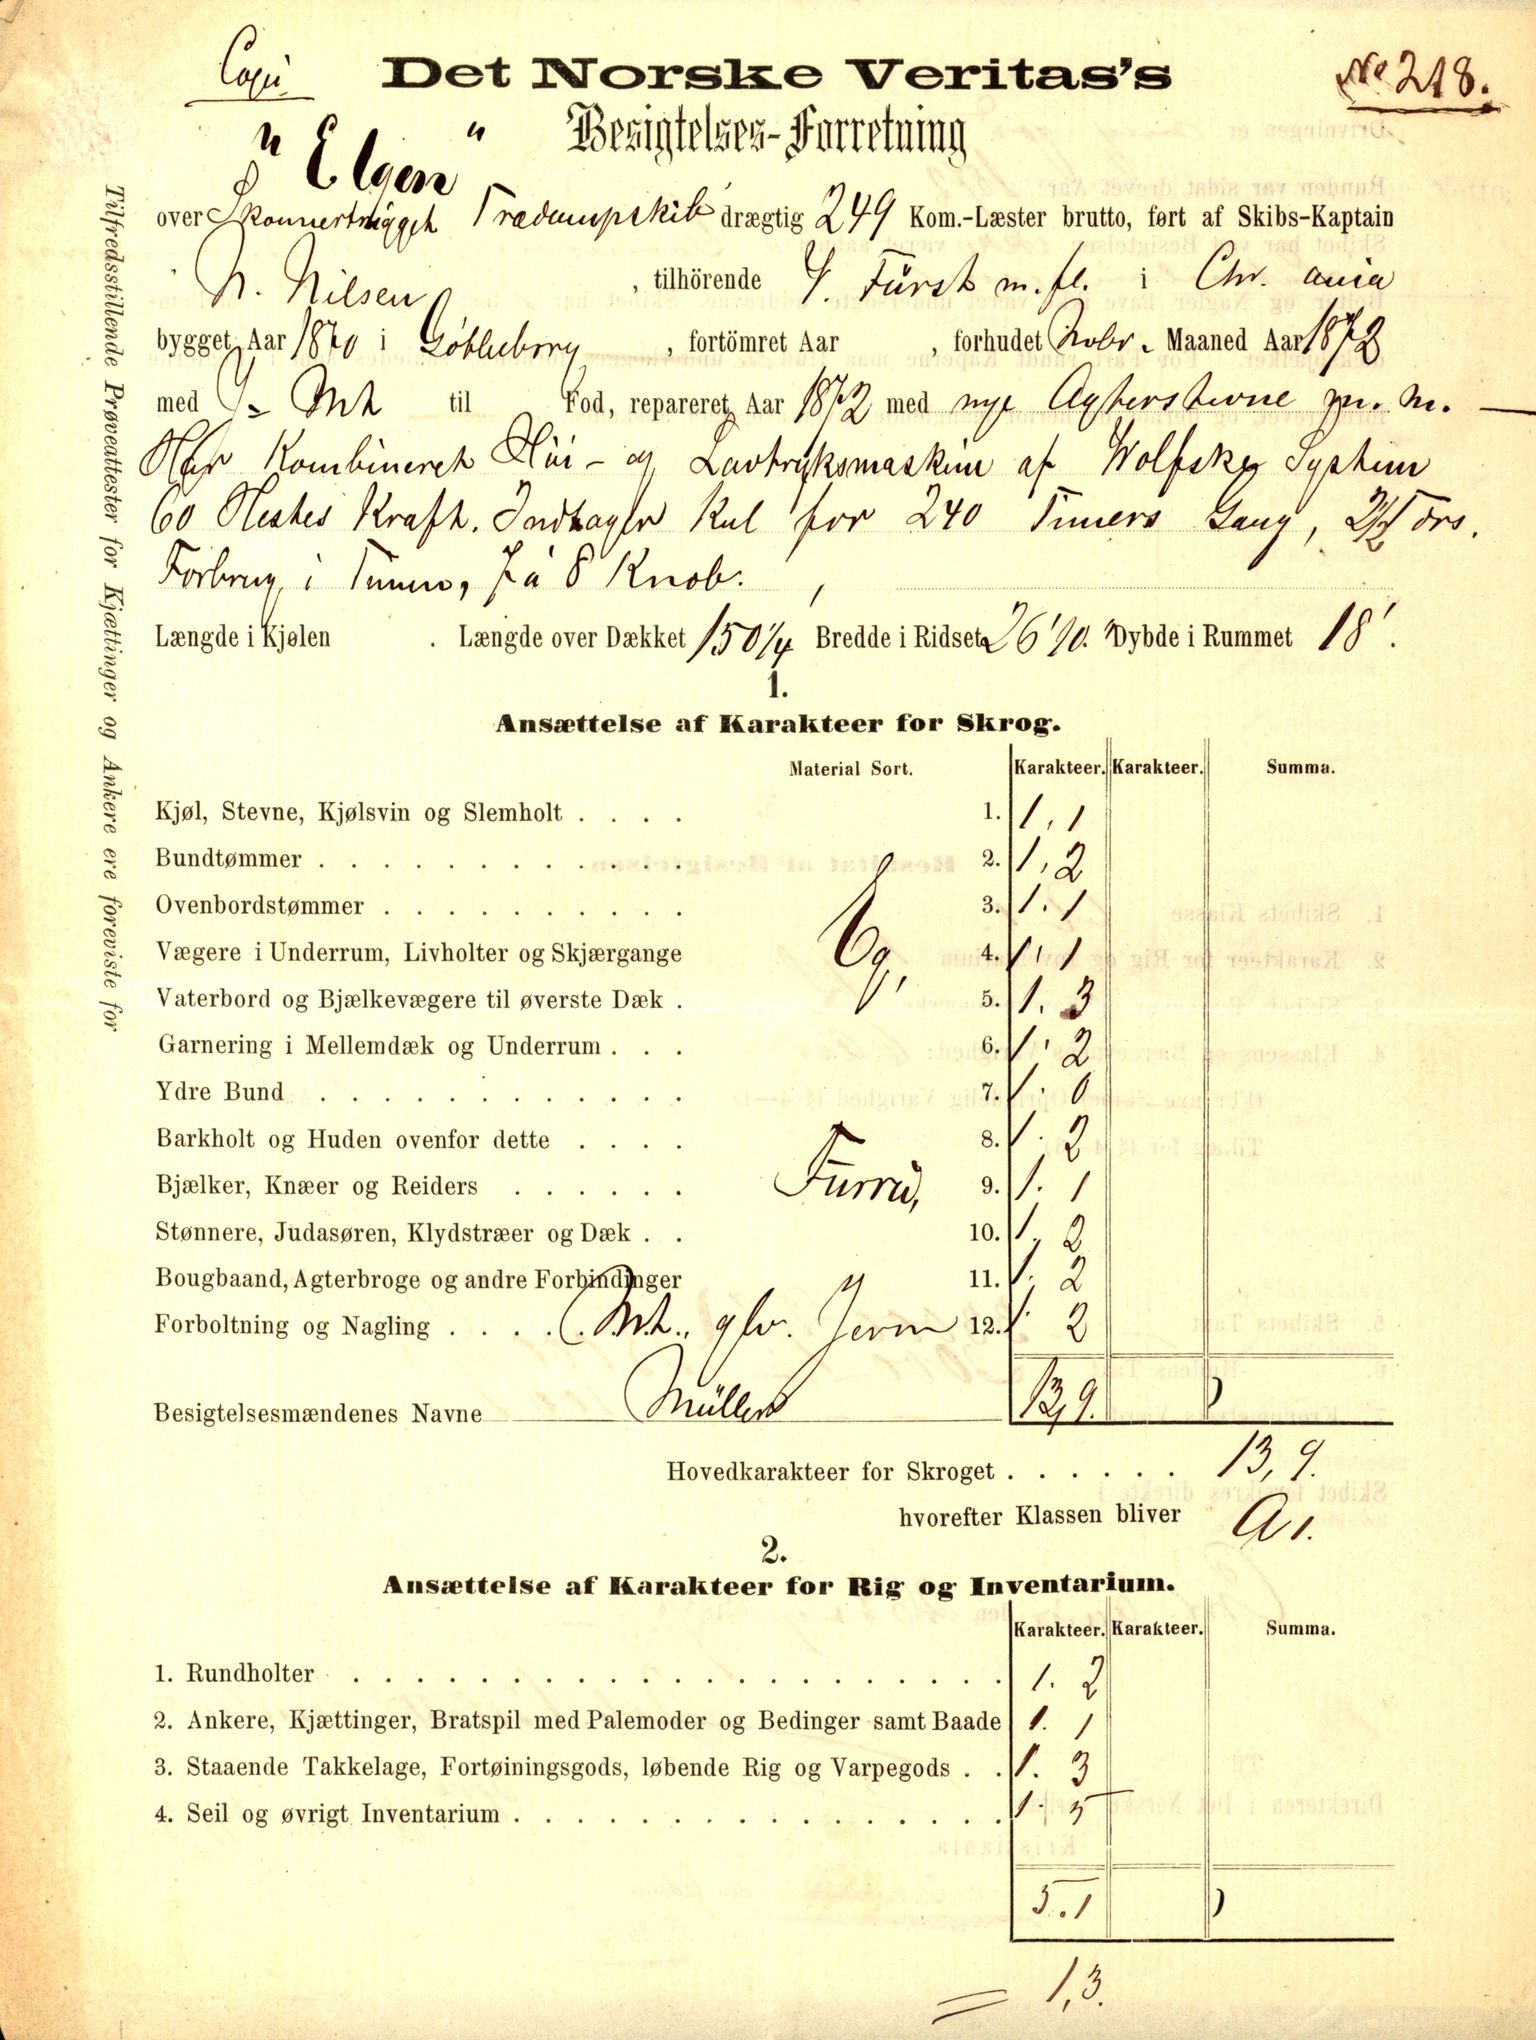 Copi Det Norske Veritas's No 218.
"Elgen" Besigtelses-Forretning
over Skonnertrigget Trædampskib drægtig 249 Kom.-Læster brutto, ført af Skibs-Kaptain
N. Nilsen, tilhörende Fürst m. fl. i Chr. ania
bygget Aar 1870 i Gøtheborg, fortömret Aar , forhudet Nobr. Maaned Aar 1872
med Mt til Fod, repareret Aar 1872 med nye Agterstevne m. m.
Har Kombineret Høi- og Lavtryksmaskine af Wolfske System
60 Hestes Kraft. Indtager Kul for 240 Timers Gang, 2½ Tørs.
Forbrug i Timen, 7 à 8 Knob.
Længde i Kjølen . Længde over Dækket 150 1/4 Bredde i Ridset 26' 10." Dybde i Rummet 18'.
1.
Ansættelse af Karakteer for Skrog.
Material Sort. Karakteer. Karakteer. Summa.
Kjøl, Stevne, Kjølsvin og Slemholt . . . . 1. 1,1
Bundtømmer . . . . . . . . . . . . 2. 1,2
Ovenbordstømmer . . . . . . . . . . 3. 1.1
Vægere i Underrum, Livholter og Skjærgange Eg, 4. 1,1
Vaterbord og Bjælkevægere til øverste Dæk . 5. 1.3
Garnering i Mellemdæk og Underrum . . . 6. 1,2
Ydre Bund . . . . . . . . . . . . 7. 1.0
Barkholt og Huden ovenfor dette . . . . 8. 1.2
Bjælker, Knæer og Reiders . . . . . . Furru, 9. 1.1
Stønnere, Judasøren, Klydstræer og Dæk . . 10. 1.2
Bougbaand, Agterbroge og andre Forbindinger 11. 1.2
Forboltning og Nagling . . . . Mt., glv. Jern 12. 1.2
Besigtelsesmændenes Navne Müller 13,9.
Hovedkarakteer for Skroget . . . . . . 13,9.
hvorefter Klassen bliver A 1.
2.
Ansættelse af Karakteer for Rig og Inventarium.
Karakteer. Karakteer. Summa.
1. Rundholter . . . . . . . . . . . . . . . . . . . . 1.2
2. Ankere, Kjættinger, Bratspil med Palemoder og Bedinger samt Baade 1.1
3. Staaende Takkelage, Fortøiningsgods, løbende Rig og Varpegods . . 1.3
4. Seil og øvrigt Inventarium . . . . . . . . . . . . . . . 1.5
5.1
= 1,3.
Tilfredsstillende Prøveattester for Kjættinger og Ankere ere foreviste for